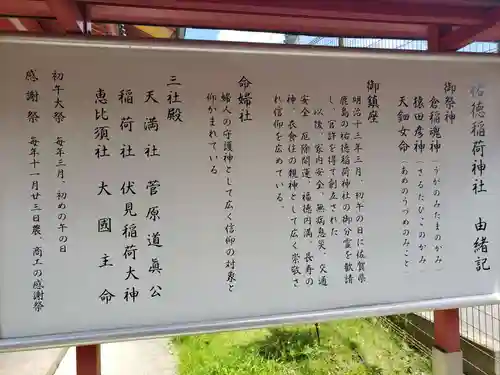 祐徳稲荷神社　由緒記
御祭神
倉稲魂神（うがのみたまのかみ）
猿田彦神（さるたひこのかみ）
天鈿女命（あめのうづめのみこと）
御鎮座
明治十三年三月、初午の日に佐賀県
鹿島の祐徳稲荷神社の御分霊を歓請
し、官許を得て創立された。
以後、家内安全、無病息災、交通
安全、厄除開運、福徳円満、長寿の
神、衣食住の親神として広く崇敬さ
れ信仰を広めている。
命婦社
婦人の守護神として広く信仰の対象と
仰がまれている
三社殿
天満社　菅原道眞公
稲荷社　伏見稲荷大神
恵比須社　大國主命
初午大祭　毎年三月、初めの午の日
感謝祭　毎年十一月廿三日農、商工の感謝祭